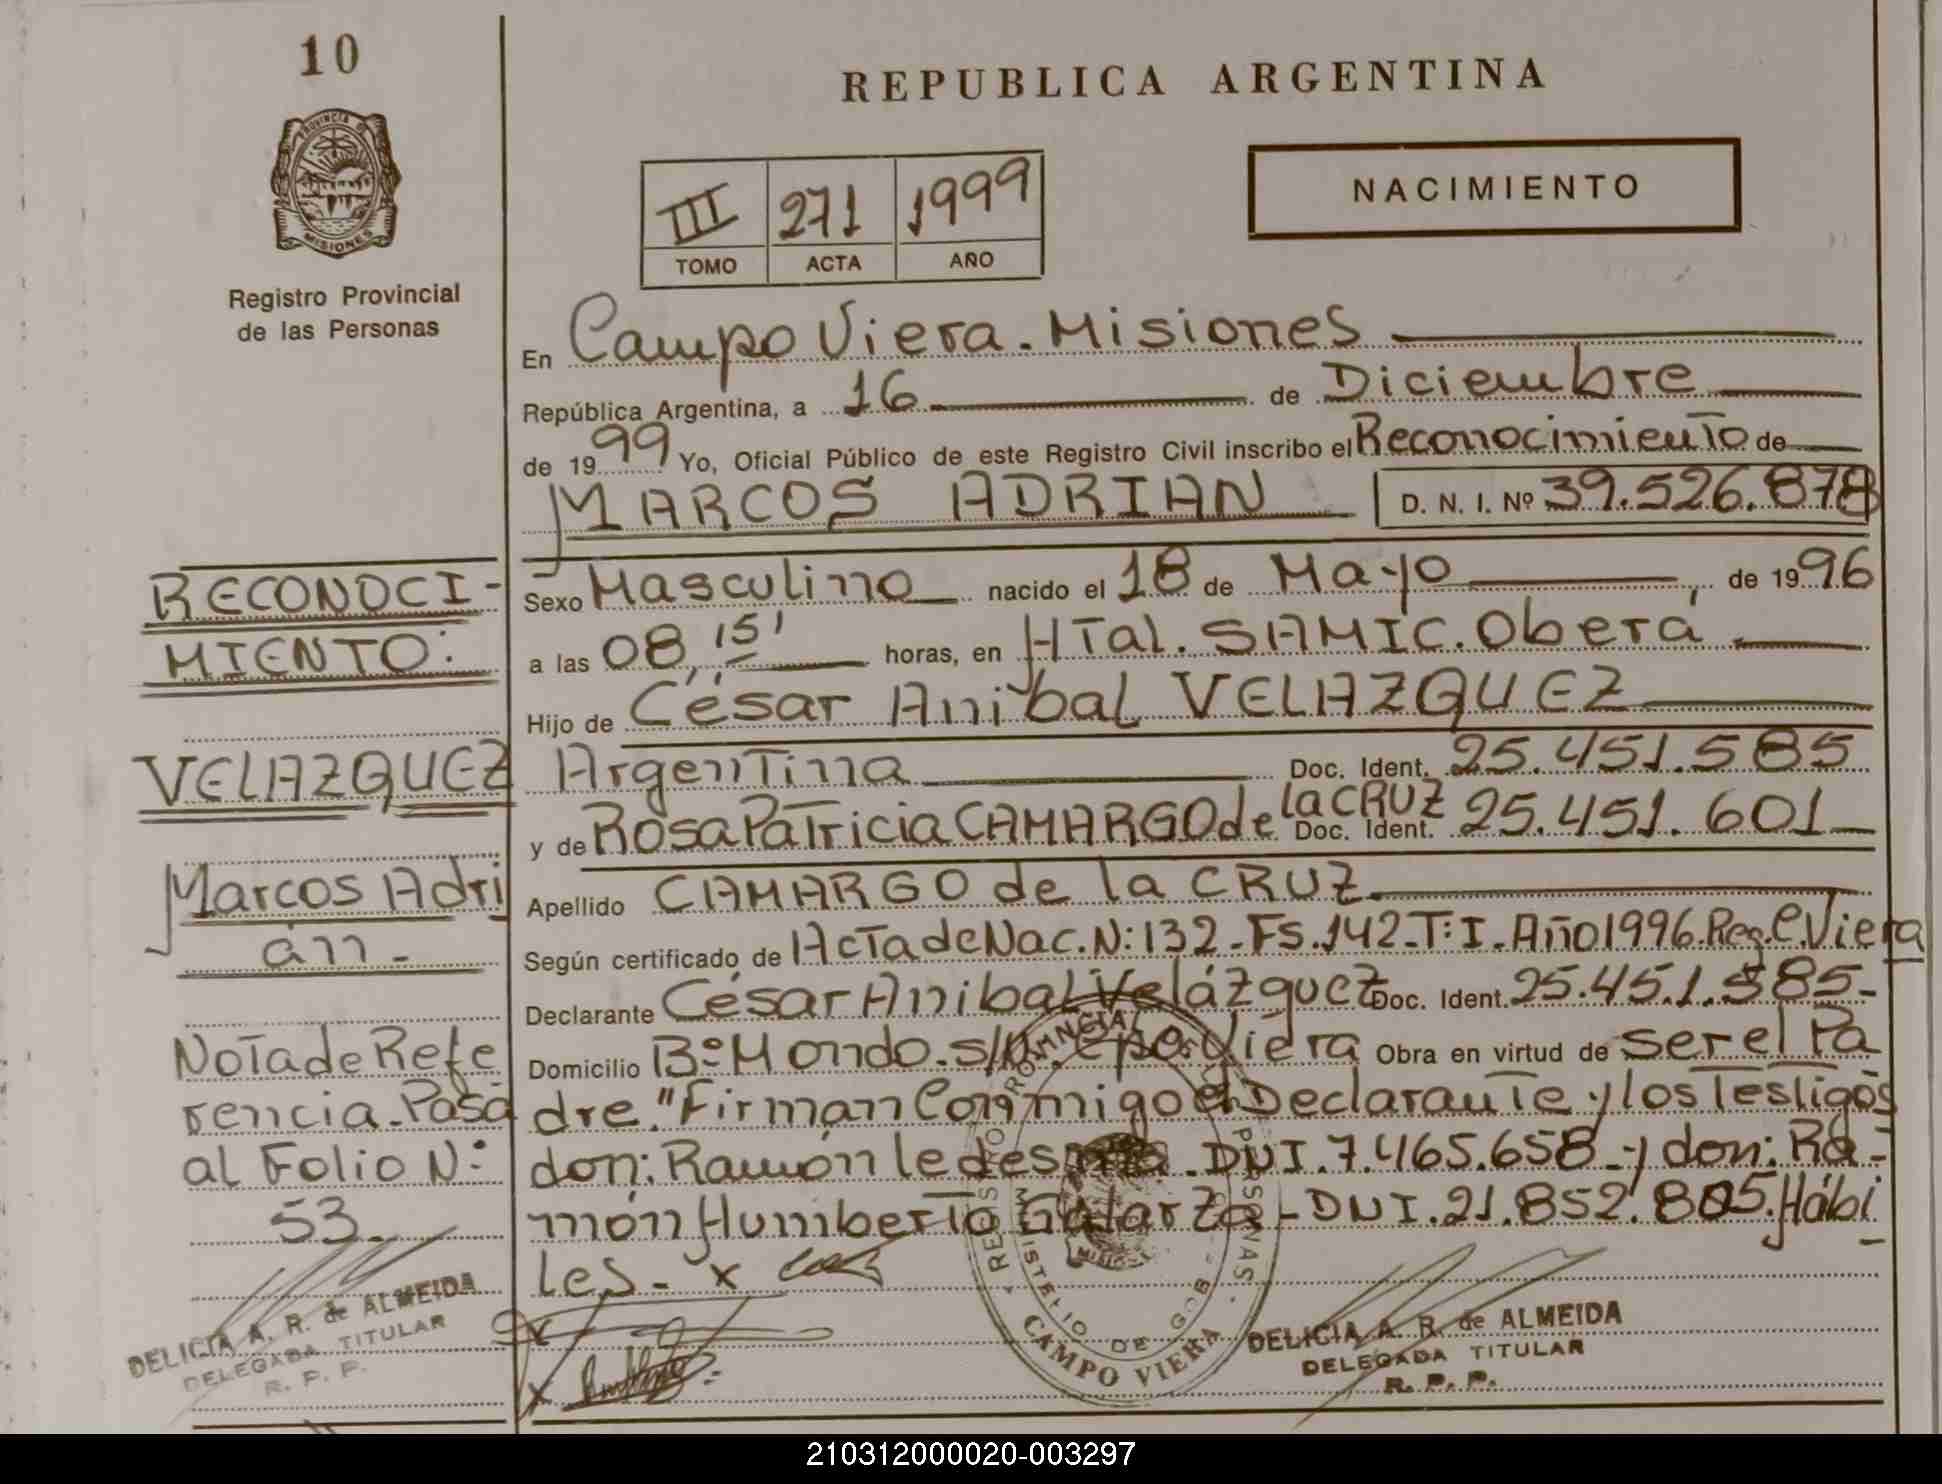 10
PROVINCIA DE
MISIONES
Registro Provincial
de las Personas
REPUBLICA ARGENTINA
III 271 1999
TOMO ACTA AÑO
NACIMIENTO
En Campo Viera. Misiones
República Argentina, a 16 de Diciembre
de 1999 Yo, Oficial Público de este Registro Civil inscribo el Reconocimiento de
MARCOS ADRIAN D. N. I. Nº 39.526.878
Sexo Masculino nacido el 18 de Mayo de 1996
a las 08,15' horas, en HTal. SAMIC. Oberá
Hijo de César Anibal VELAZQUEZ
Argentina Doc. Ident. 25.451.585
y de Rosa Patricia CAMARGO de la CRUZ Doc. Ident. 25.451.601
Apellido CAMARGO de la CRUZ
Según certificado de Acta de Nac. N: 132 - Fs. 142 - T: I - Año 1996. Reg. C. Viera
Declarante César Anibal Velázquez Doc. Ident. 25.451.585-
Domicilio Bº Mondo. s/n. Cpo Viera Obra en virtud de ser el Pa
dre." Firman Conmigo el Declarante y los Testigos
don: Ramón ledesma. DNI. 7.465.658 - y don: Ra-
món Humberto Galarza - DNI. 21.852.805. Hábi
les. x
x
x
RECONOCI-
MIENTO:
VELAZQUEZ
Marcos Adri
án -
Nota de Refe
rencia. Pasa
al Folio N:
53.
DELICIA A. R. de ALMEIDA
DELEGADA TITULAR
R. P. P.
CAMPO VIERA
DELICIA A. R. de ALMEIDA
DELEGADA TITULAR
R. P. P.
210312000020-003297